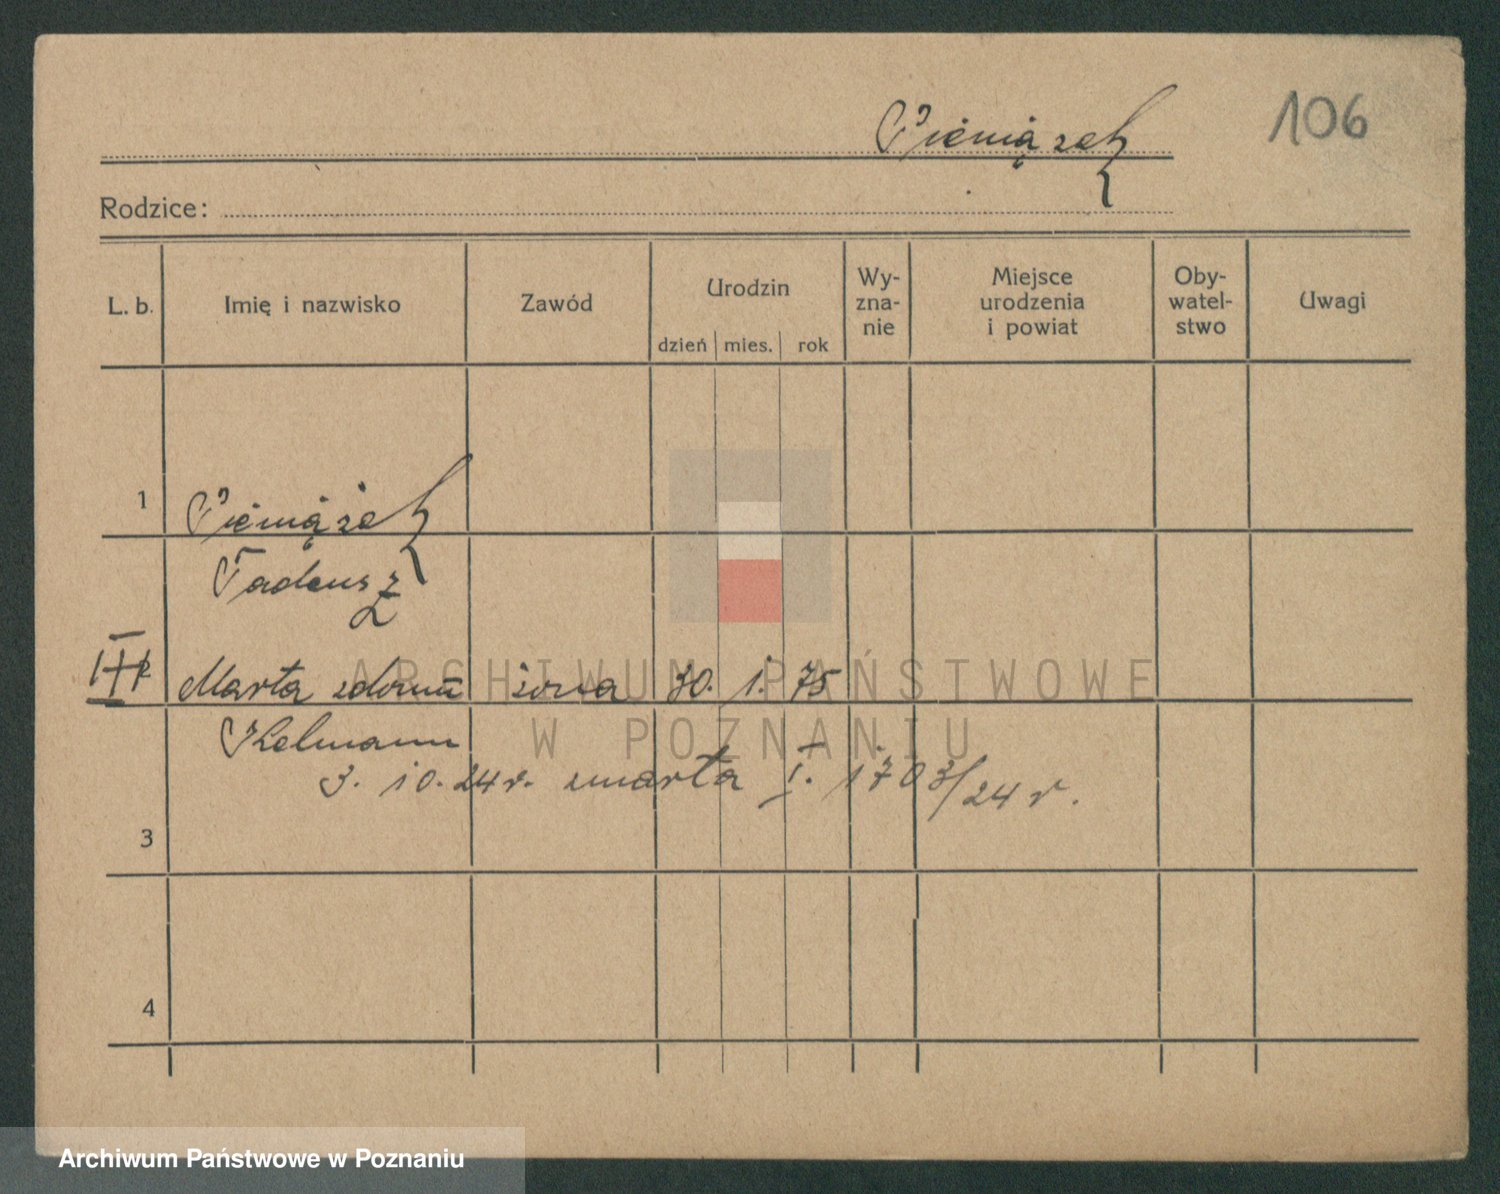 Pieniążek
106
Rodzice:
L. b.
Imię i nazwisko
Zawód
Urodzin
dzień
mies.
rok
Wy-
zna-
nie
Miejsce
urodzenia
i powiat
Oby-
watel-
stwo
Uwagi
1
Pieniążek
Tadeusz
Marta zdomu żona 30. 1. 75
Kelmann
3. 10. 24 r. umarła I. 1703/24 r.
3
4
ARCHIWUM PAŃSTWOWE
W POZNANIU
Archiwum Państwowe w Poznaniu